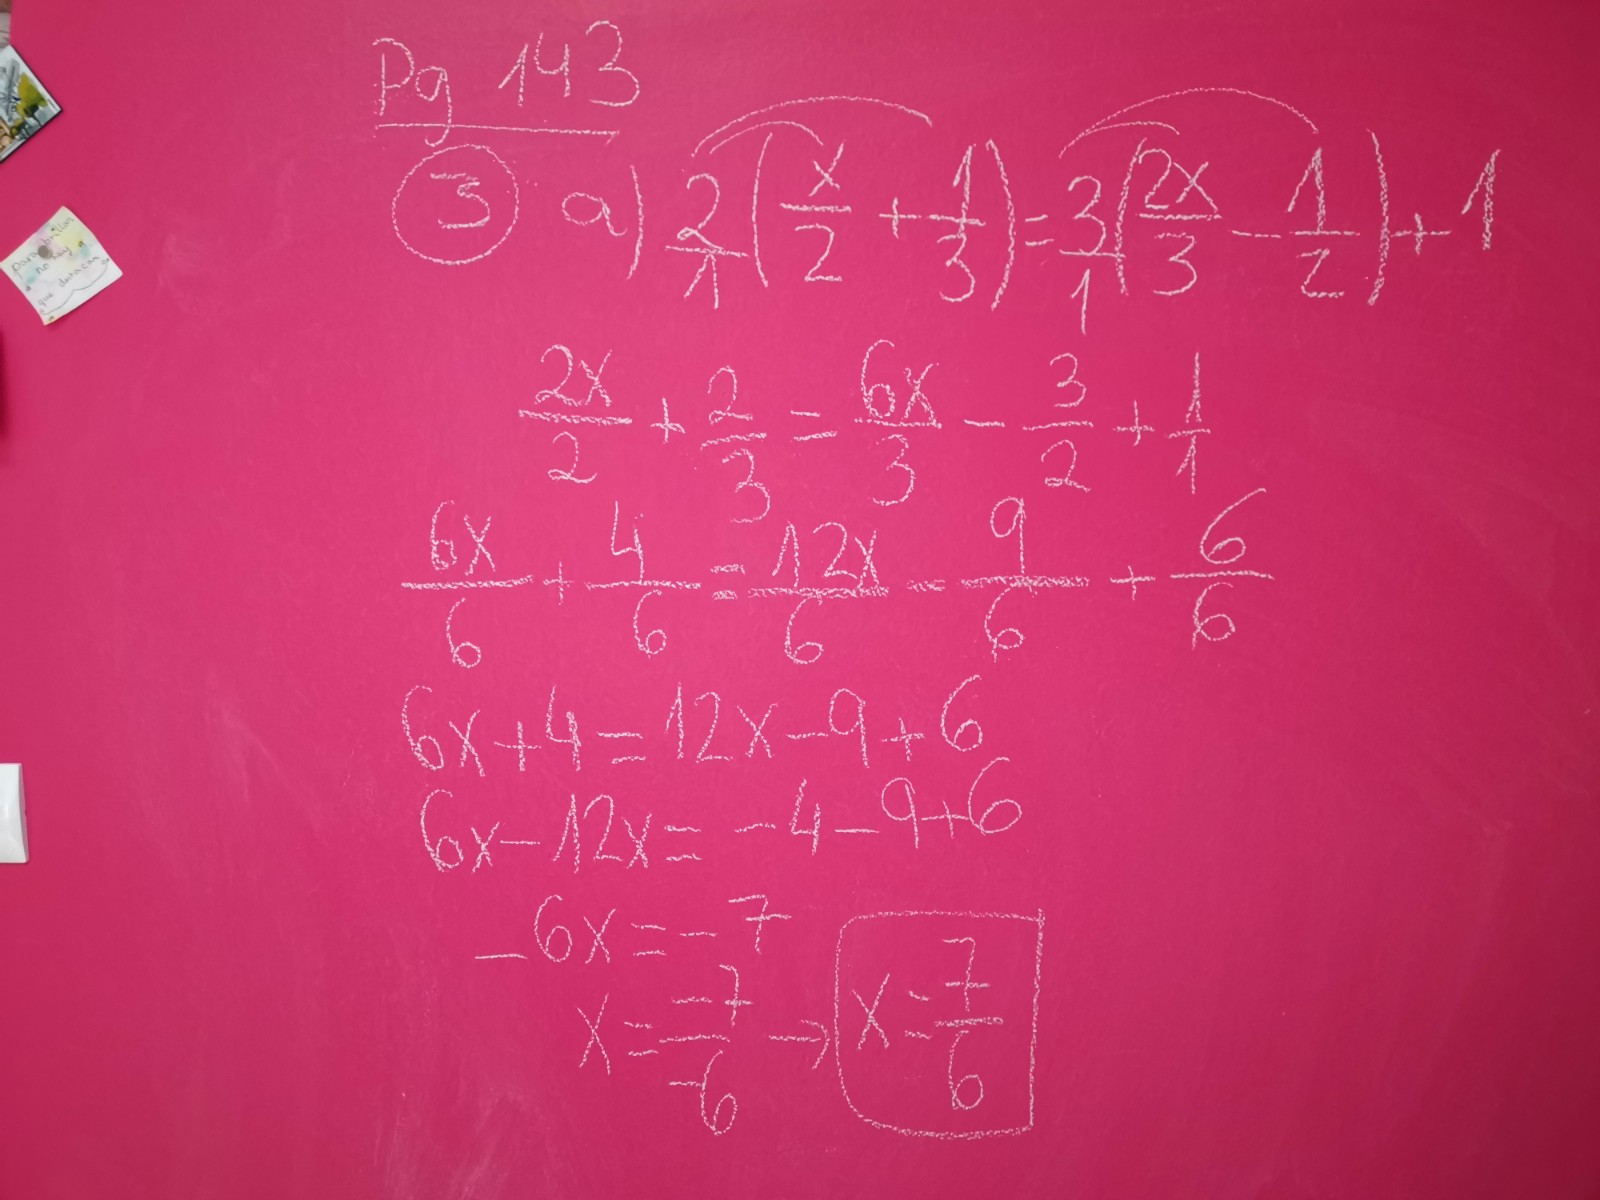 Pg 143
3 a) 2/1 (x/2 + 1/3) = 3/1 (2x/3 - 1/2) + 1
2x/2 + 2/3 = 6x/3 - 3/2 + 1/1
6x/6 + 4/6 = 12x/6 - 9/6 + 6/6
6x+4=12x-9+6
6x-12x=-4-9+6
-6x=-7
x=-7/-6 → x=7/6
para brillar
no hay
que